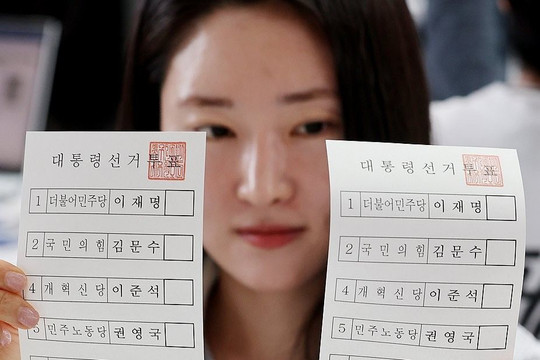 대통령선거투표
1 더불어민주당 이재명
2 국민의힘 김문수
4 개혁신당 이준석
5 민주노동당 권영국
대통령선거투표
1 더불어민주당 이재명
2 국민의힘 김문수
4 개혁신당 이준석
5 민주노동당 권영국